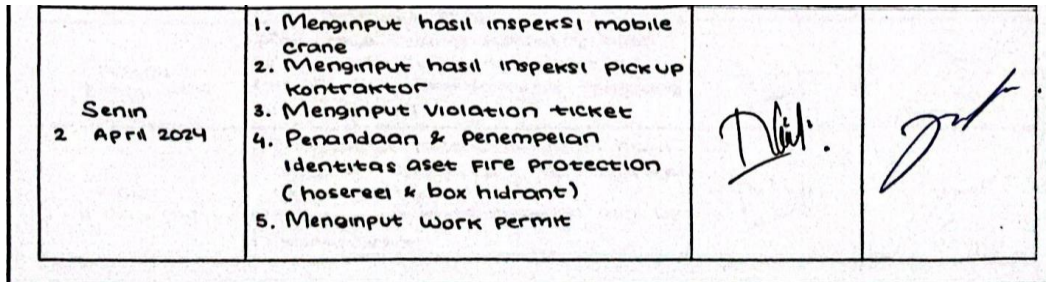 Senin
2 April 2024
1. Menginput hasil inspeksi mobile
crane
2. Menginput hasil inspeksi pick up
kontraktor
3. Menginput violation ticket
4. Penandaan & penempelan
identitas aset fire protection
(hosereel & box hidrant)
5. Menginput work permit